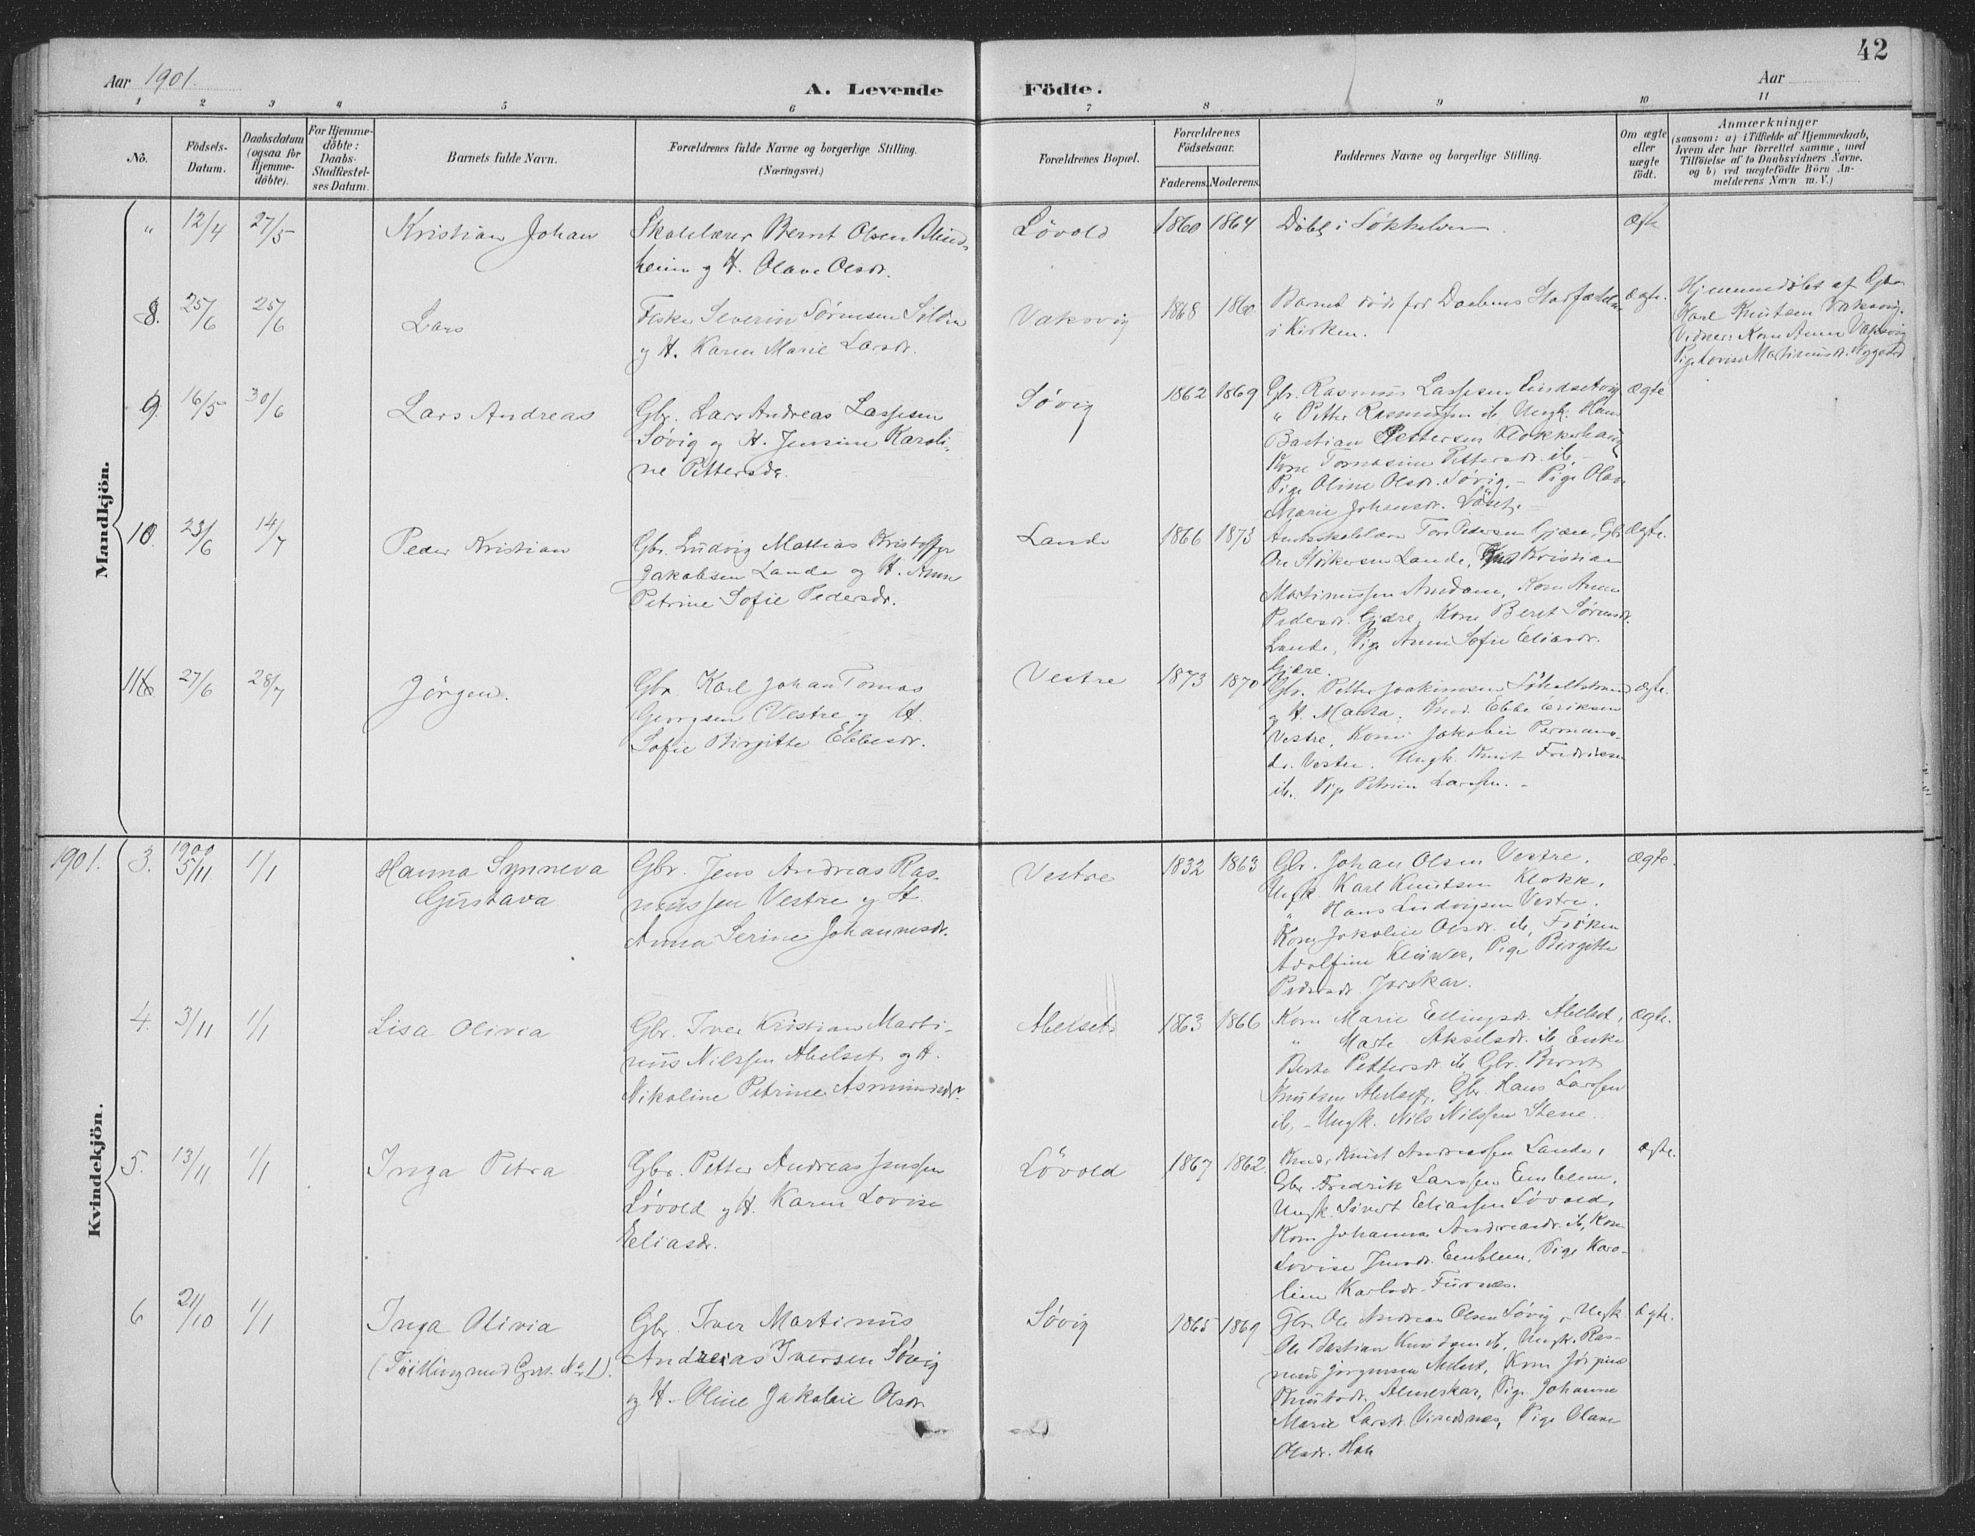 42
Aar 1901.
A. Levende Födte.
Aar
1 2 3 4 5 6 7 8 9 10 11
No.
Födsels-
Datum.
Daabsdatum
(ogsaa for
Hjemme-
döbte).
For Hjemme-
döbte:
Daabs-
Stadfæstel-
ses Datum.
Barnets fulde Navn.
Forældrenes fulde Navne og borgerlige Stilling.
(Næringsvei.)
Forældrenes Bopæl.
Forældrenes
Födselsaar.
Faderens. Moderens.
Faddernes Navne og borgerlige Stilling.
Om ægte
eller
uægte
födt.
Anmærkninger
(saasom: a) i Tilfælde af Hjemmedaab,
hvem der har forrettet samme, med
Tilföielse af to Daabsvidners Navne,
og b) ved uægtefödte Börn An-
melderens Navn m. V.)
Mandkjön.
" 12/4 27/5 Kristian Johan
Skolelærer Bernt Olsen Blind-
heim og H. Olave Olsdr.
Løvold 1860 1864
Døbt i Søkkelven.
ægte
8. 25/6 25/6 Lars
Fisker Severin Sørensen
og H. Karen Marie Larsdr.
Vaksvig 1868 1860
Barnet døde før Daabens Stadfæstelse
i Kirken.
ægte.
Hjemmedøbt af Gbr.
Karl Knutsen Vaksvig.
Vidner: Kone Anne Vaksvig
Pige Martinusdr. Nygaard
9. 16/5 30/6 Lars Andreas
Gbr. Lars Andreas Lassesen
Søvig og H. Jensine Karoli-
ne Pettersdr.
Søvig 1862 1869
Gbr. Rasmus Lassesen
" Petter Rasmussen ib. Ungk. Hans
Bastian Pettersen Klokkerhaug
Kone Tomasine Pettersdr. ib,
Pige Oline Olsdr. Søvig. - Pige Olave
Marie Johansdr.
ægte
10. 23/6 14/7 Peder Kristian
Gbr. Ludvig Mattias Kristoffer
Jakobsen Lande og H. Anne
Petrine Sofie Pedersdr.
Lande 1866 1873
Pedersen Gjære, Gbr.
Lande, Kristian
Martinussen Amdam, Kone Anne
Pedersdr. Gjære, Kone Beret Sørensdr.
Lande, Pige Anne Sofie Eliasdr.
Gjære.
ægte.
11 27/6 28/7 Jørgen.
Gbr. Karl Johan Tomas
Georgsen Vestre og H.
Sofie Birgitte Ebbesdr.
Vestre 1873 1870
Gbr. Petter Joakimsen Søholtstrand
og H. Marta, Ebbe Eriksen
Vestre, Kone Jakobie
dr. Vestre. Ungk. Knut Fredriksen
ib. Pige Petrine Larssen. -
ægte.
1901.
Kvindekjön.
3. 1900 5/11 1/1 Hanna Synneva
Gustava
Gbr. Jens Andreas Ras-
mussen Vestre og H.
Anna Serine Johannesdr.
Vestre 1832 1863
Gbr. Johan Olsen Vestre.
Ungk. Karl Knutsen Klokk.
" Hans Ludvigsen Vestre.
Kone Jakobie Olsdr. ib, Frøken
Adolfine Klüwer, Pige Birgitte
Pedersdr. Jarskar.
ægte.
4. 3/11 1/1 Lisa Olivia
Gbr. Iver Kristian Marti-
nus Nilssen Abelset og H.
Nikoline Petrine Asmundsdr.
Abelset 1863 1866
Kone Marie Ellingsdr. Abelset,
" Marte Akselsdr. ib Enke
Berte Pettersdr. ib. Gbr. Bernt
Knutsen Abelset, Gbr. Hans Larssen
ib, - Ungk. Nils Nilssen Stene.
ægte.
5. 13/11 1/1 Inga Petra
Gbr. Petter Andreas Jenssen
Løvold og H. Karen Lovise
Eliasdr.
Løvold 1867 1862
Knut Andreassen Lande,
Gbr. Fredrik Larssen Emblem,
Ungk. Sivert Eliassen Løvold,
Kone Johanna Andreasdr. ib, Kone
Lovise Jensdr. Emblem, Pige Karo-
line Karlsdr. Furnæs.
ægte.
6 21/10 1/1 Inga Olivia
(Tvilling med Gut. No 1).
Gbr. Iver Martinus
Andreas Iversen Søvig
og H. Oline Jakobie Olsdr.
Søvig 1865 1869
Gbr. Ole Andreas Olsen Søvig, Ungk.
Ole Bastian Knutsen ib, Ungk. Ras-
mus Jørgensen Abelset, Kone Jørgine
Knutsdr. Almeskar, Pige Johanne
Marie Larsdr. Viset, Pige Olave
Olsdr.
ægte.